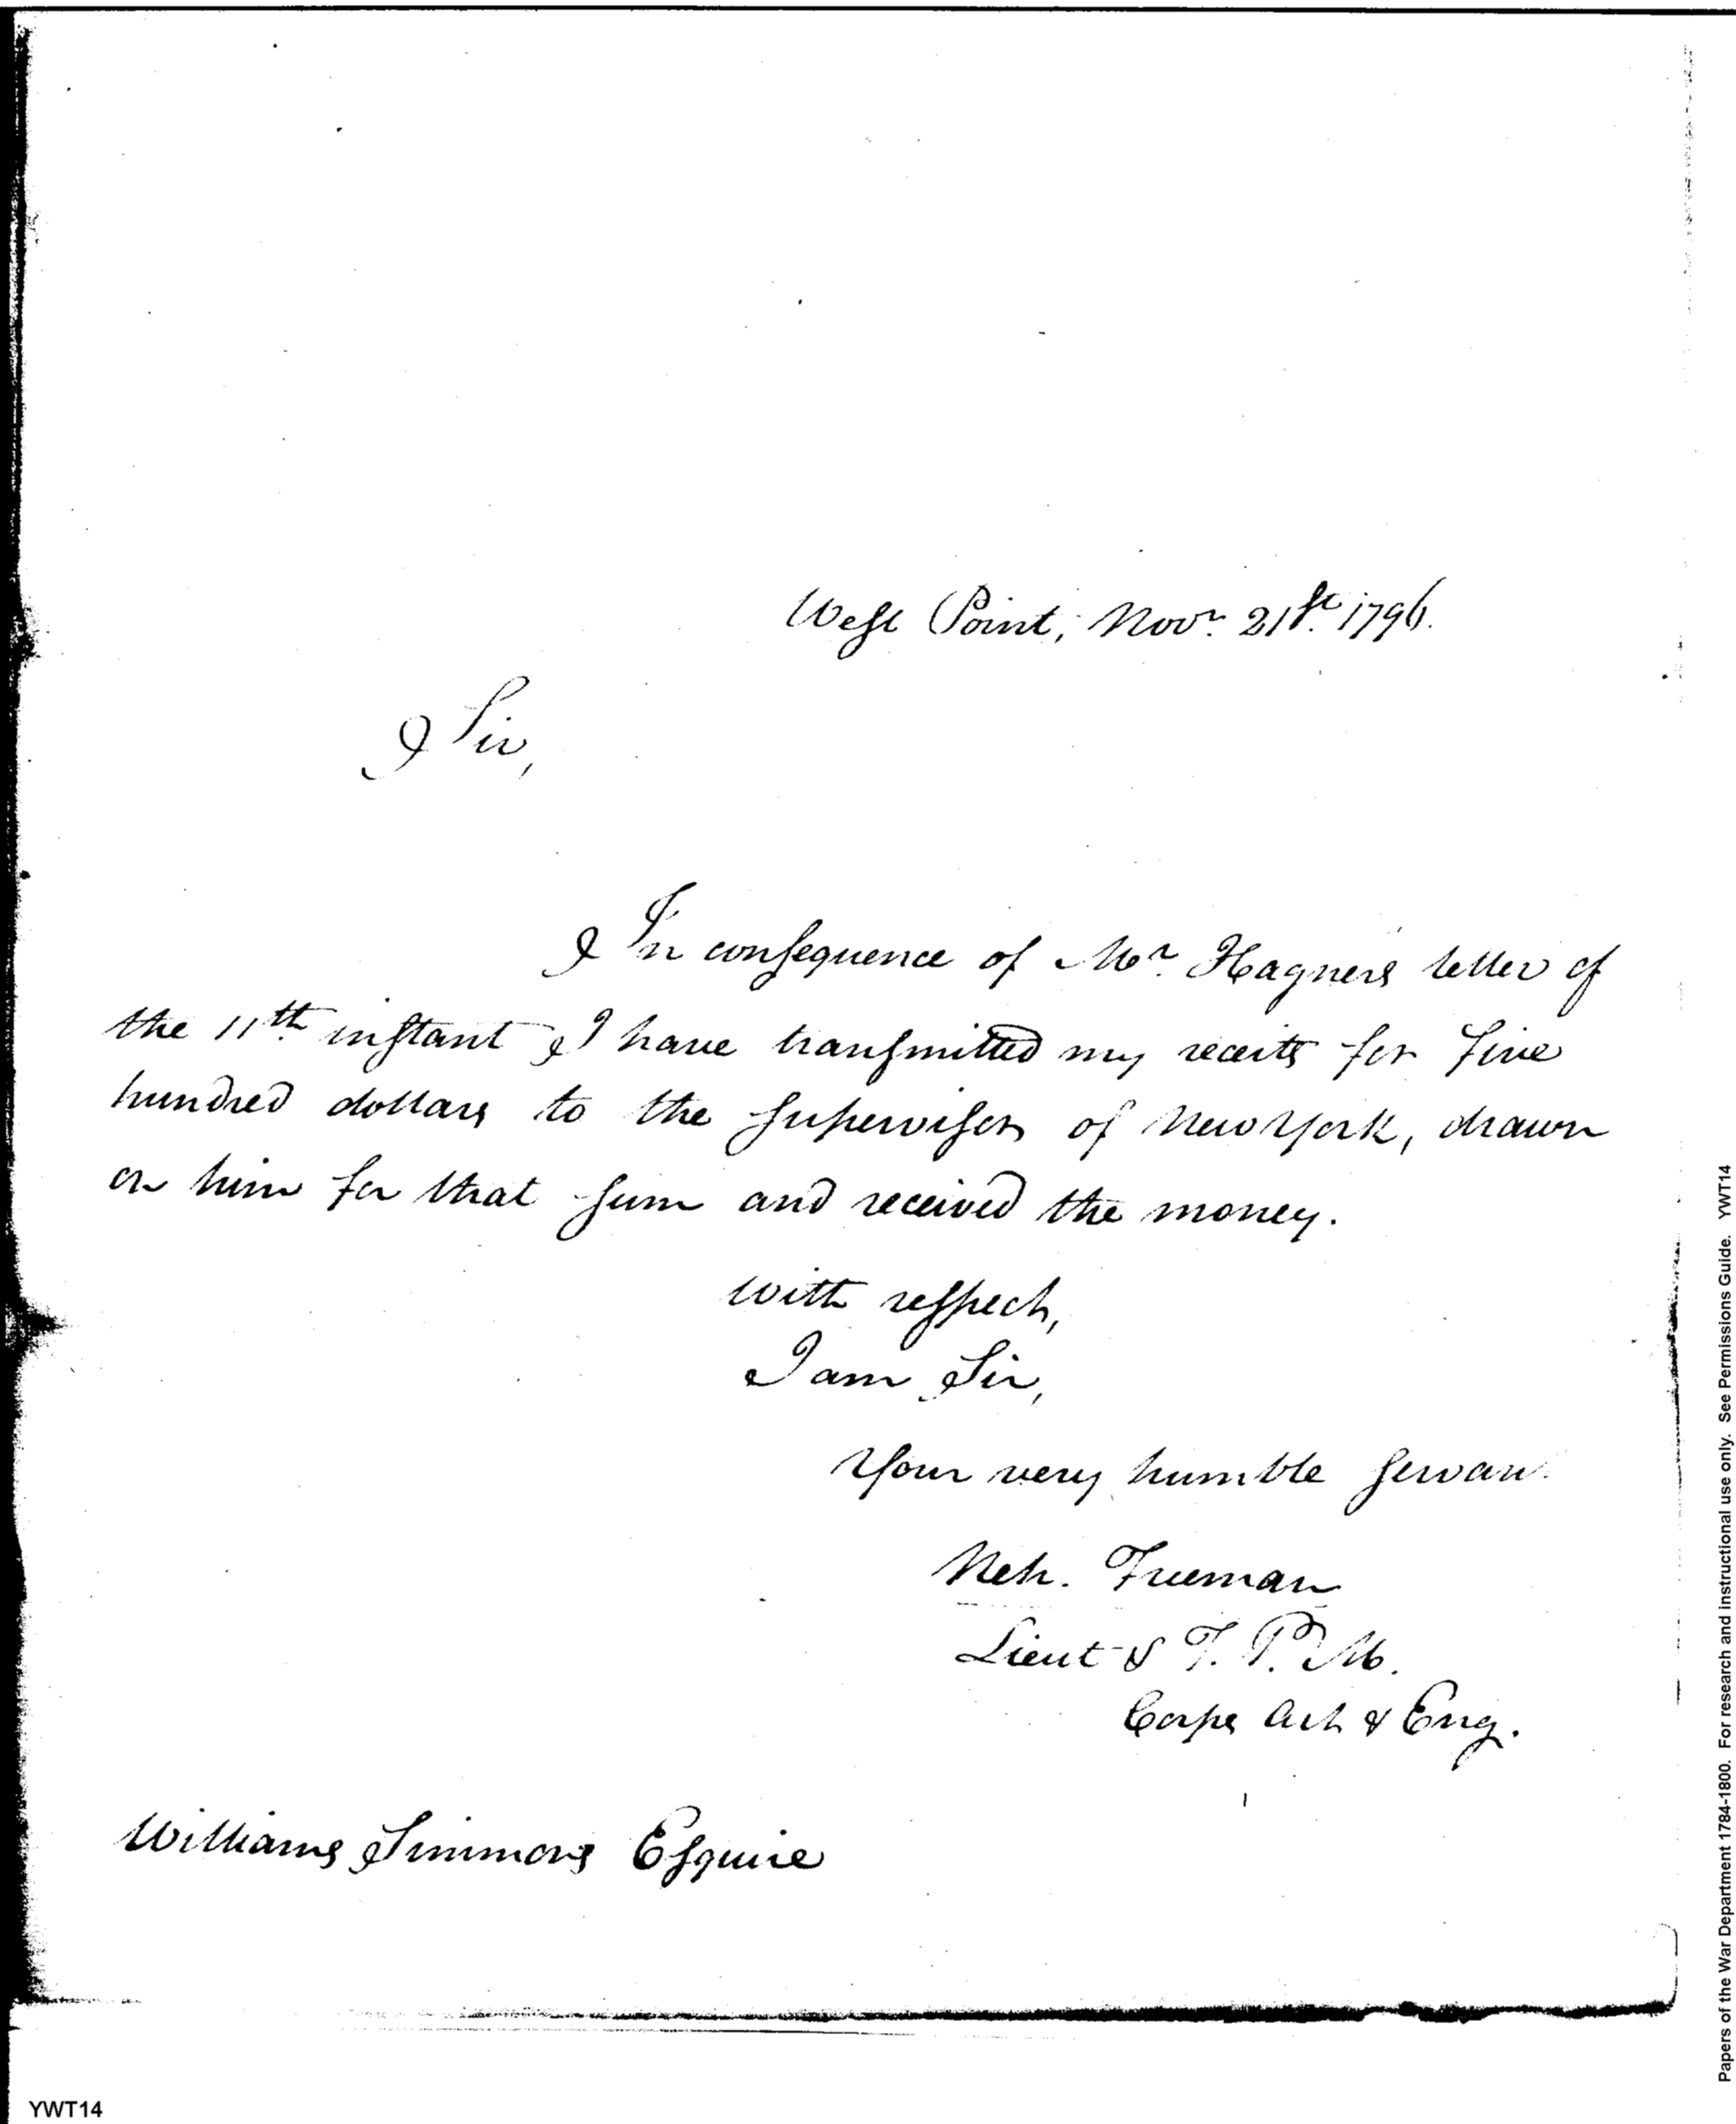 West Point, Novr. 21st. 1796.
Sir,
In consequence of Mr. Hagners letter of
the 11th. instant I have transmitted my receits for Five
hundred dollars to the Supervisor of New York, drawn
on him for that sum and received the money.
With respect,
I am Sir,
Your very humble Servan
Neh. Freeman
Lieut & T. P. M.
Corps Art & Eng.
Williams Simmons Esquire
YWT14
Papers of the War Department 1784-1800. For research and instructional use only. See Permissions Guide. YWT14